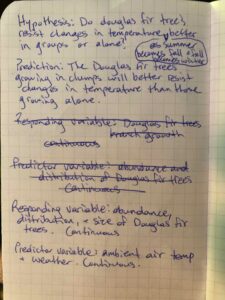 Hypothesis: Do douglas fir trees
resist changes in temperature better
in groups or alone? as summer
becomes fall + fall
becomes winter
Prediction: The Douglas fir trees
growing in clumps will better resist
changes in temperature than those
growing alone.
Responding variable: Douglas fir trees
branch growth
continuous
Predictor variable: abundance and
distribution of Douglas fir trees
Continuous
Responding variable: abundance,
distribution, + size of Douglas fir
trees. Continuous
Predictor variable: ambient air temp
+ weather. Continuous.